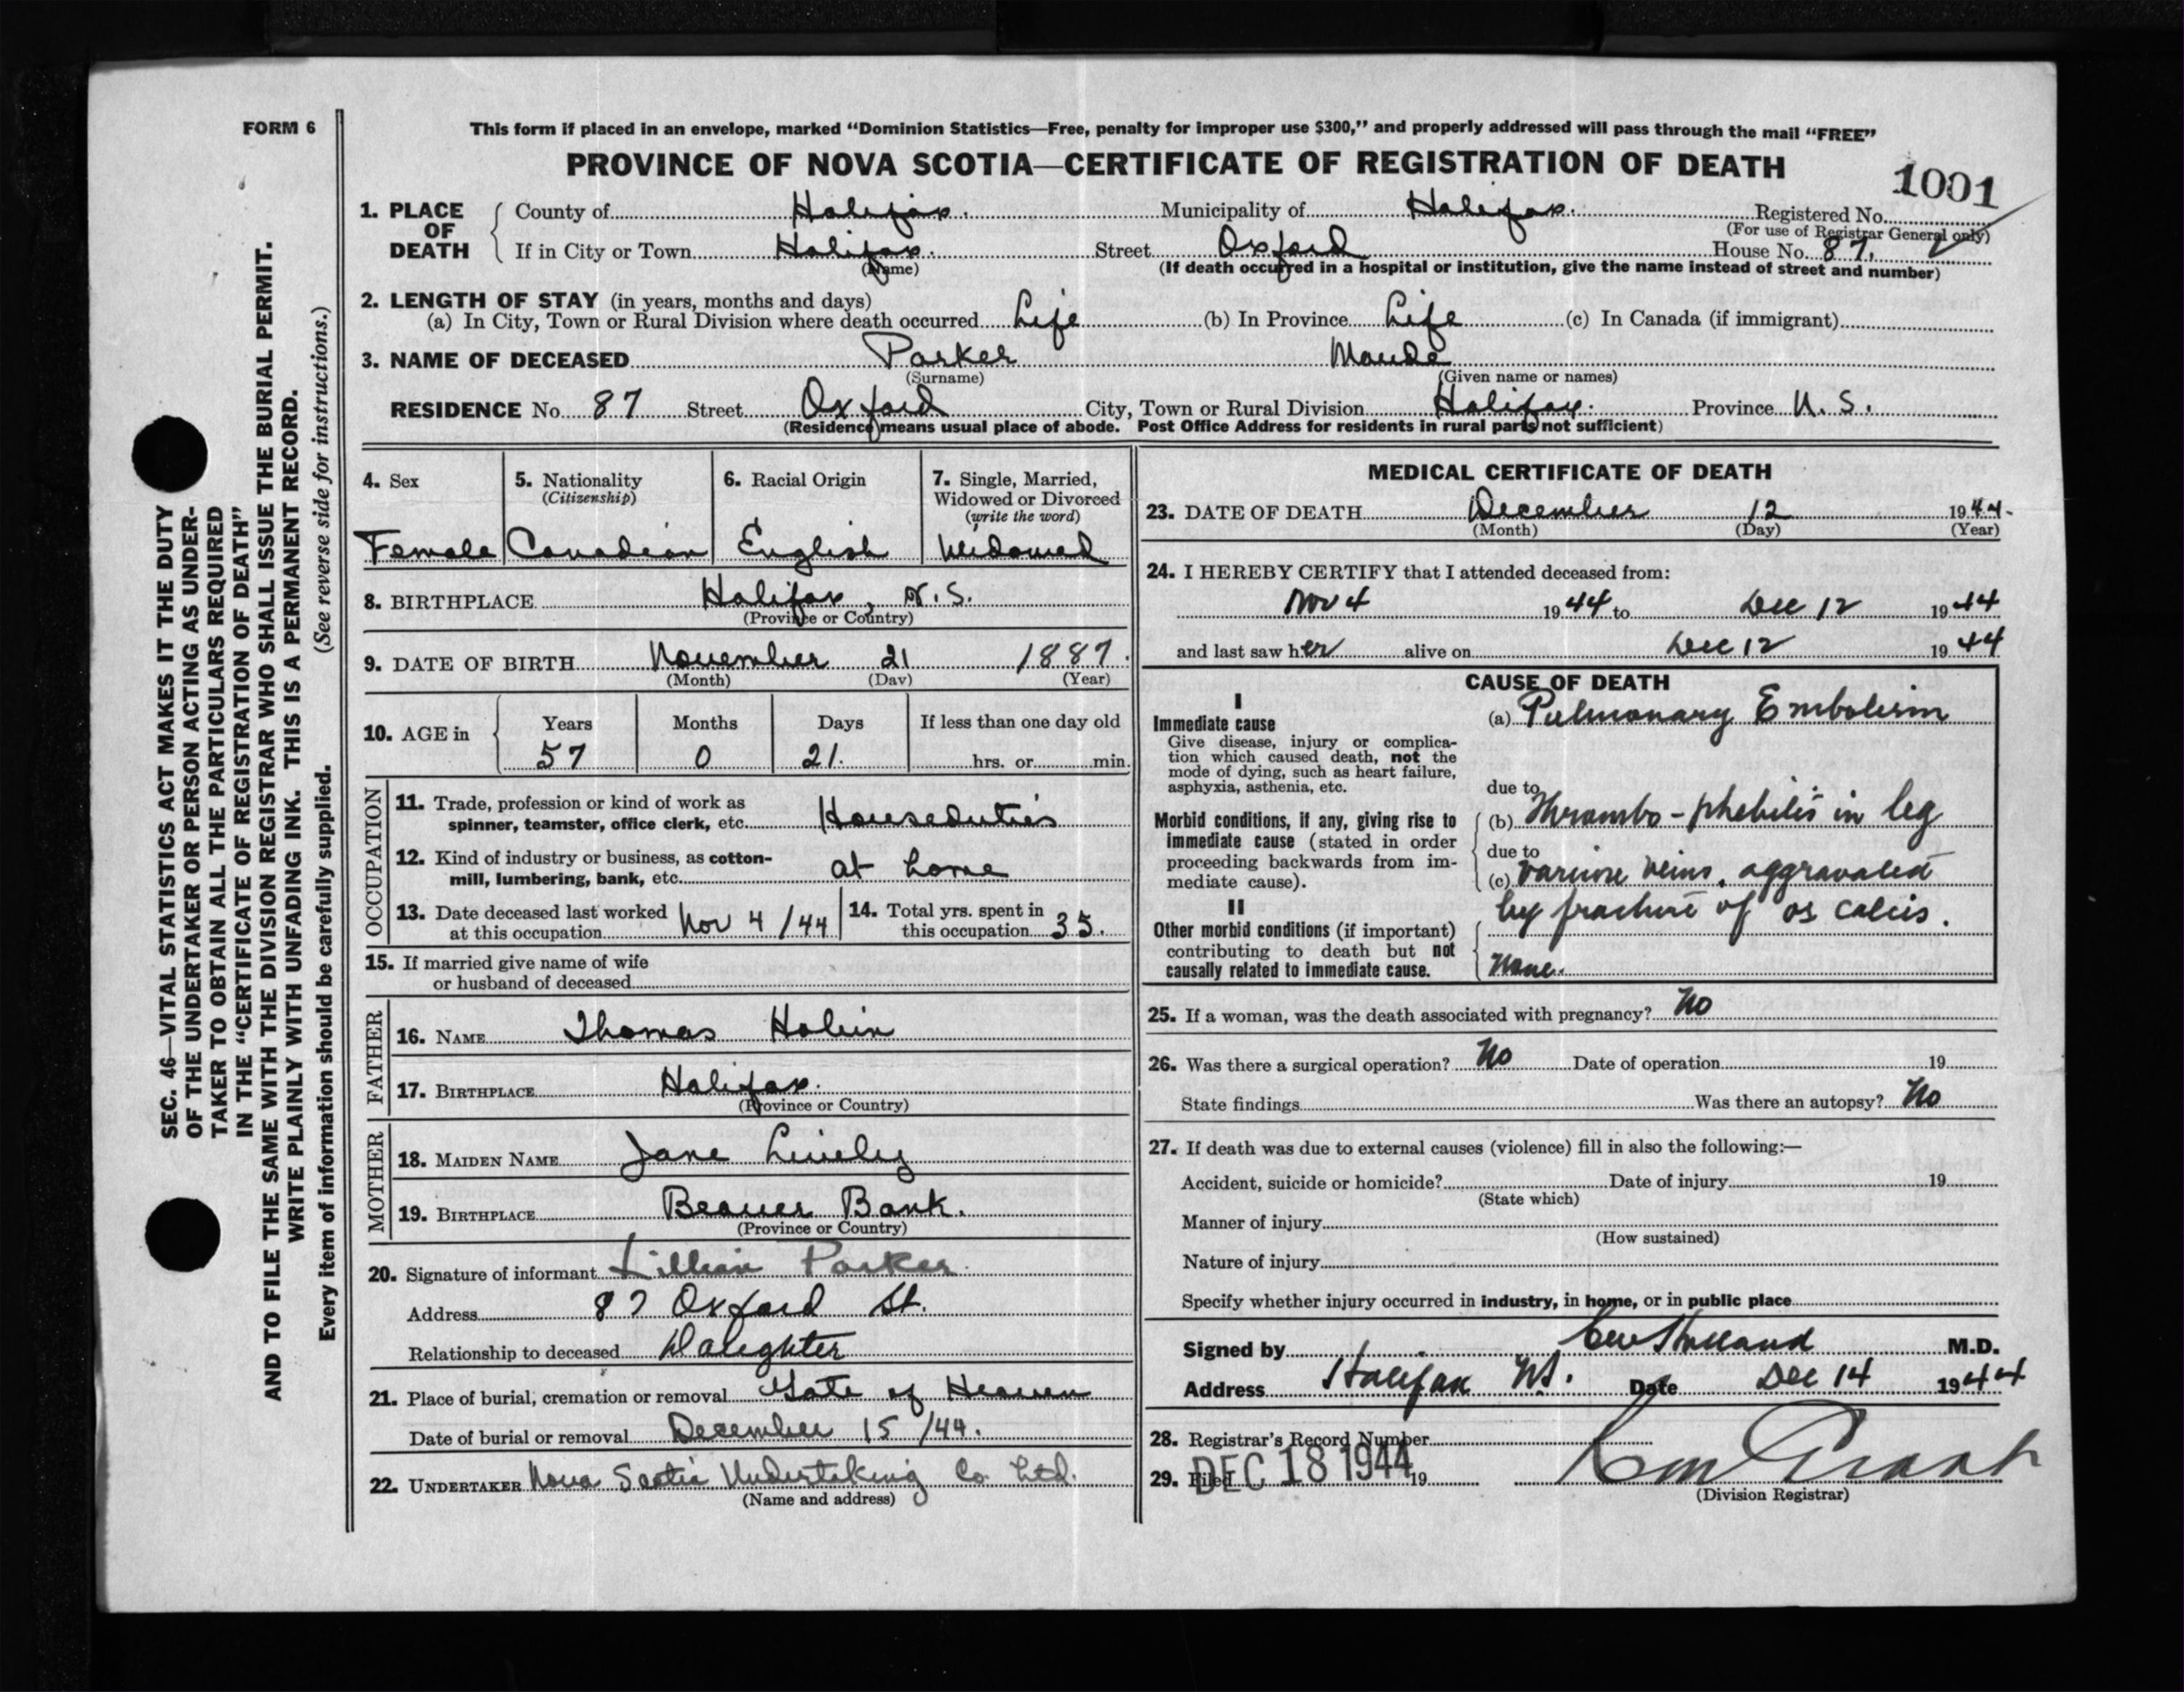 FORM 6
This form if placed in an envelope, marked "Dominion Statistics—Free, penalty for improper use $300," and properly addressed will pass through the mail "FREE"
PROVINCE OF NOVA SCOTIA—CERTIFICATE OF REGISTRATION OF DEATH
1001
1. PLACE OF DEATH County of Halifax. Municipality of Halifax. Registered No.
(For use of Registrar General only)
If in City or Town Halifax. Street Oxford House No. 87.
(Name) (If death occurred in a hospital or institution, give the name instead of street and number)
2. LENGTH OF STAY (in years, months and days)
(a) In City, Town or Rural Division where death occurred Life (b) In Province Life (c) In Canada (if immigrant)
3. NAME OF DECEASED Parker Maude
(Surname) (Given name or names)
RESIDENCE No. 87 Street Oxford City, Town or Rural Division Halifax. Province N. S.
(Residence means usual place of abode. Post Office Address for residents in rural parts not sufficient)
4. Sex
Female
5. Nationality
(Citizenship)
Canadian
6. Racial Origin
English
7. Single, Married,
Widowed or Divorced
(write the word)
Widowed
8. BIRTHPLACE Halifax, N.S.
(Province or Country)
9. DATE OF BIRTH November 21 1887.
(Month) (Day) (Year)
10. AGE in Years Months Days If less than one day old
57 0 21. hrs. or min.
OCCUPATION
11. Trade, profession or kind of work as
spinner, teamster, office clerk, etc. Houseduties
12. Kind of industry or business, as cotton-
mill, lumbering, bank, etc. at home
13. Date deceased last worked
at this occupation Nov 4/44
14. Total yrs. spent in
this occupation 35.
15. If married give name of wife
or husband of deceased
FATHER
16. NAME Thomas Holein
17. BIRTHPLACE Halifax.
(Province or Country)
MOTHER
18. MAIDEN NAME Jane
19. BIRTHPLACE Beaver Bank.
(Province or Country)
20. Signature of informant Lillian Parker
Address 87 Oxford St.
Relationship to deceased Daughter
21. Place of burial, cremation or removal Gate of Heaven
Date of burial or removal December 15/44.
22. UNDERTAKER Nova Scotia Undertaking Co. Ltd.
(Name and address)
MEDICAL CERTIFICATE OF DEATH
23. DATE OF DEATH December 12 1944.
(Month) (Day) (Year)
24. I HEREBY CERTIFY that I attended deceased from:
Nov 4 1944 to Dec 12 1944
and last saw her alive on Dec 12 1944
CAUSE OF DEATH
I
Immediate cause
Give disease, injury or complica-
tion which caused death, not the
mode of dying, such as heart failure,
asphyxia, asthenia, etc.
(a) Pulmonary Embolism
due to
Morbid conditions, if any, giving rise to
immediate cause (stated in order
proceeding backwards from im-
mediate cause).
(b) Thrombo-phebitis in leg
due to
(c) varicose veins, aggravated
by fracture of os calcis.
II
Other morbid conditions (if important)
contributing to death but not
causally related to immediate cause.
None.
25. If a woman, was the death associated with pregnancy? No
26. Was there a surgical operation? No Date of operation 19
State findings Was there an autopsy? No
27. If death was due to external causes (violence) fill in also the following:—
Accident, suicide or homicide? Date of injury 19
(State which)
Manner of injury
(How sustained)
Nature of injury
Specify whether injury occurred in industry, in home, or in public place
Signed by Holland M.D.
Address Halifax NS. Date Dec 14 1944
28. Registrar's Record Number
29. Filed DEC 18 1944 19
(Division Registrar)
SEC. 46—VITAL STATISTICS ACT MAKES IT THE DUTY
OF THE UNDERTAKER OR PERSON ACTING AS UNDER-
TAKER TO OBTAIN ALL THE PARTICULARS REQUIRED
IN THE "CERTIFICATE OF REGISTRATION OF DEATH"
AND TO FILE THE SAME WITH THE DIVISION REGISTRAR WHO SHALL ISSUE THE BURIAL PERMIT.
WRITE PLAINLY WITH UNFADING INK. THIS IS A PERMANENT RECORD.
Every item of information should be carefully supplied. (See reverse side for instructions.)